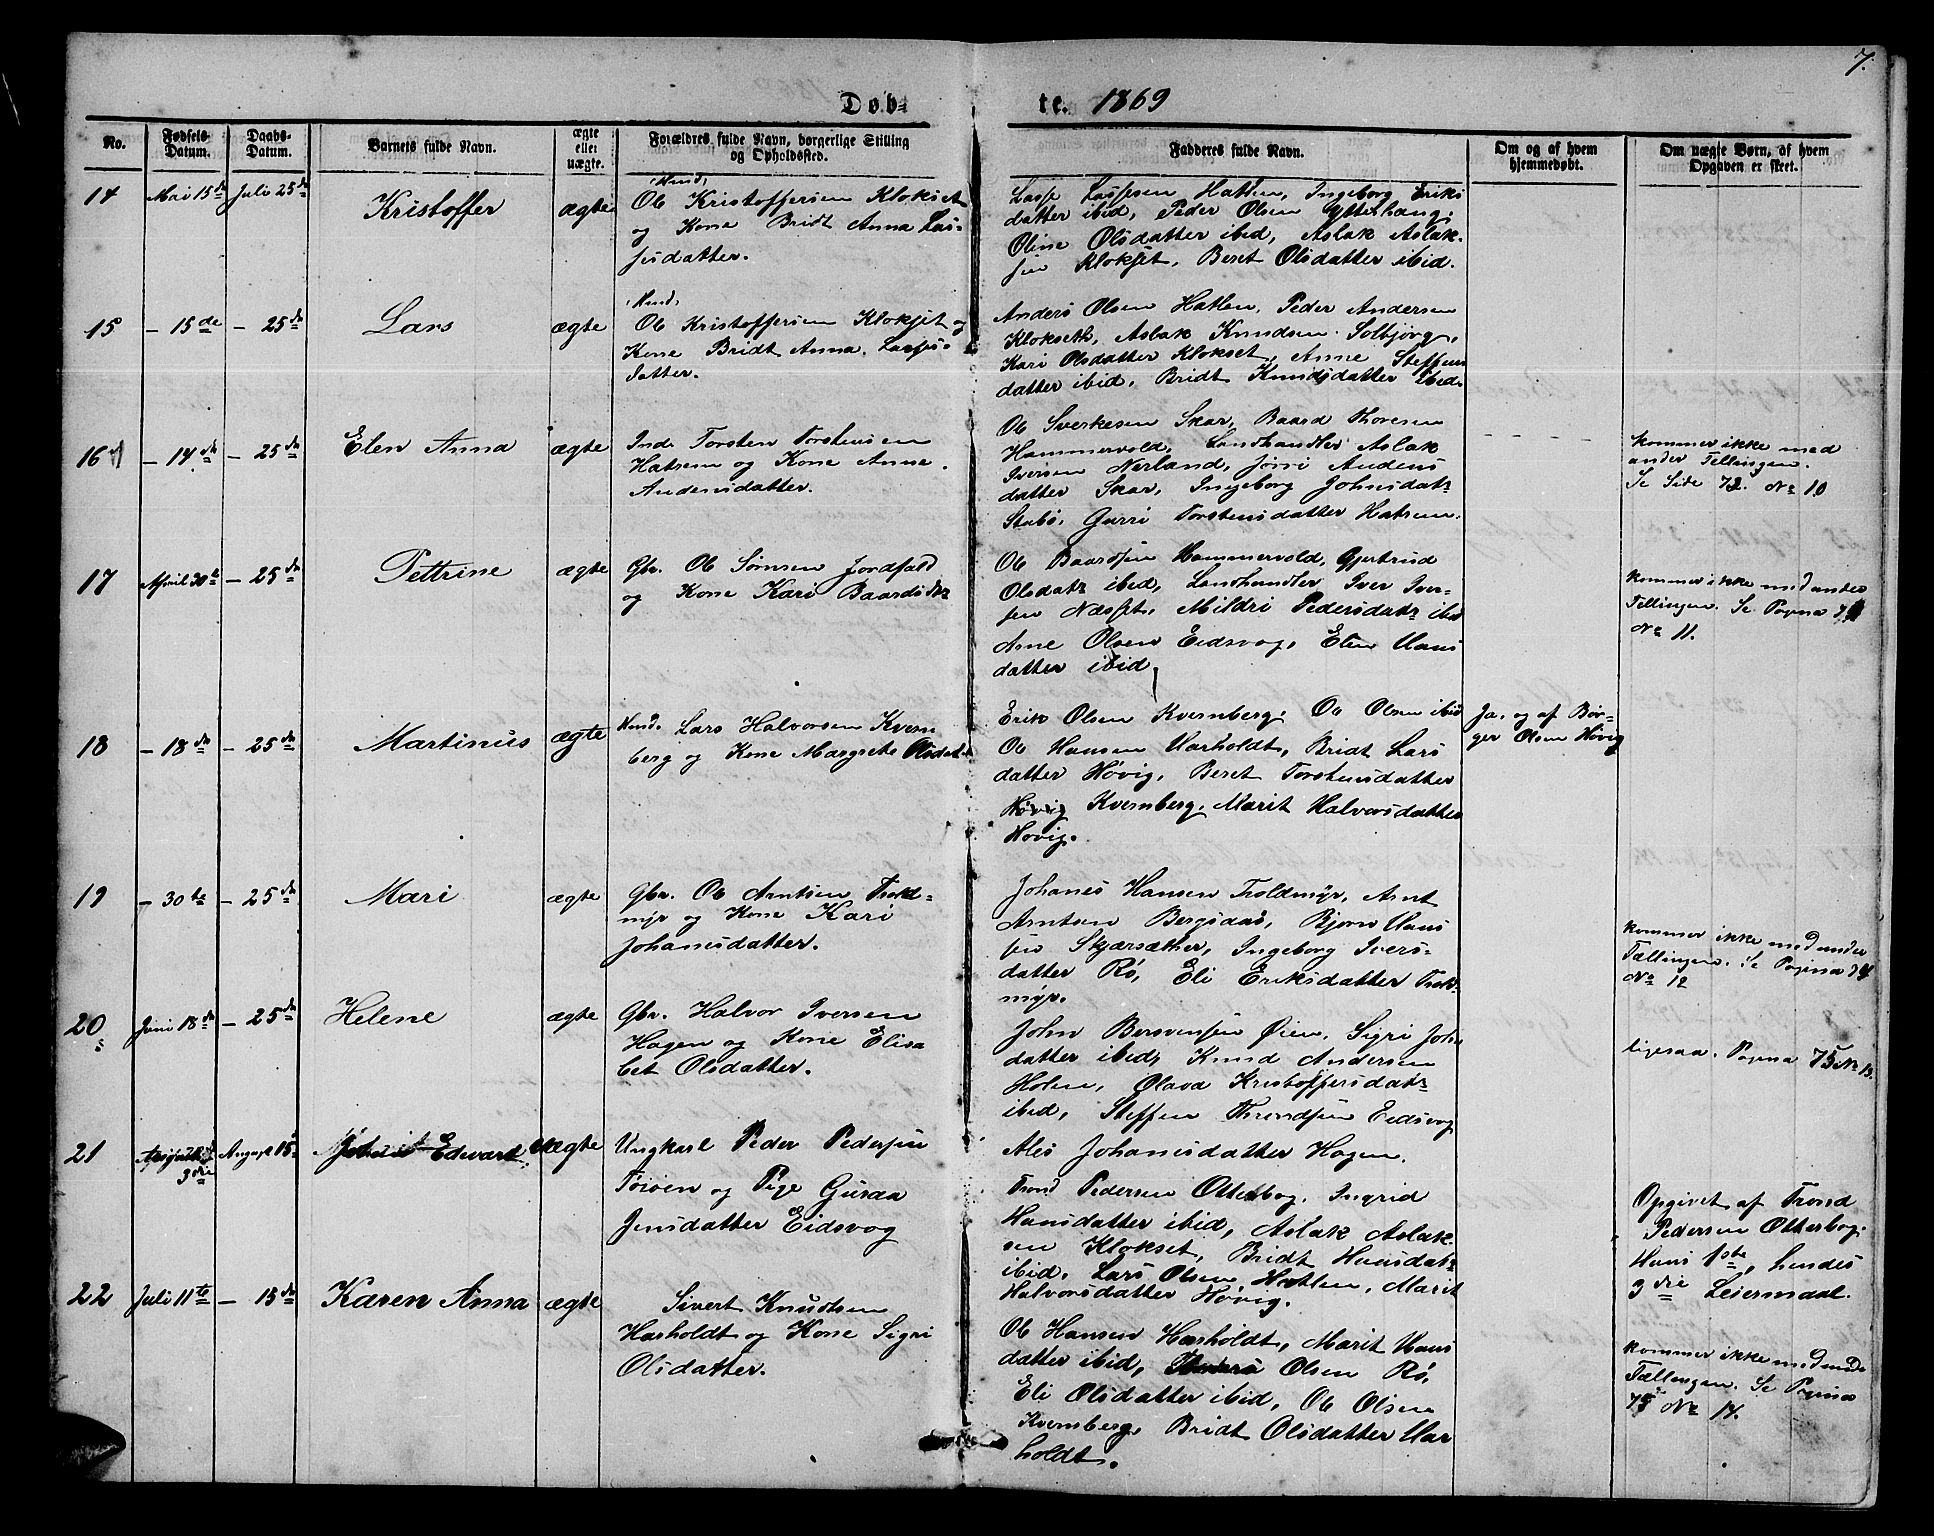 7.
Døb-
te. 1869
No.
Fødsels
Datum.
Daabs-
Datum.
Barnets fulde Navn.
ægte
eller
uægte.
Forældres fulde Navn, borgerlige Stilling
og Opholdssted.
Fadderes fulde Navn.
Om og af hvem
hjemmedøbt.
Om uægte Børn, af hvem
Opgaven er skeet.
14
Mai 15de
Juli 25de
Kristoffer
ægte
Hmd.
Ole Kristoffersen Klokset
og Kone Bridt Anna Las-
sesdatter.
Lasse Lassesen Hatlen, Ingeborg Eriks
datter ibid, Peder Olsen Ytterhaug,
Oline Olsdatter ibid, Aslak Aslak-
sen Klokset, Beret Olsdatter ibid.
15
- 15de
- 25de
Lars
ægte
Hmd.
Ole Kristoffersen Klokset og
Kone Bridt Anna Lasses-
datter.
Anders Olsen Hatlen, Peder Andersen
Klokseth, Aslak Knudsen Solbjørg,
Kari Olsdatter Klokset, Anne Steffens
datter ibid, Bridt Knudsdatter ibid.
16
- 14de
- 25de
Elen Anna
ægte
Ind. Torsten Torstensen
Hatrem og Kone Anne
Andersdatter.
Ole Sverkesen Skar, Baard Thoresen
Hammervold, Landhandler Aslak
Iversen Nerland, Jøri Anders
datter Skar, Ingeborg Johnsdatr
Stubø, Gurri Torstensdatter Hatrem.
kommer ikke med
under Tellingen.
Se Side 72. No 10
17
April 30te
- 25de
Pettrine
ægte
Gbr. Ole Sørnsen Jordfald
og Kone Kari Baardsdtr
Ole Baardsen Hammervold, Gjertrud
Olsdatr ibid, Landhandler Iver Iver-
sen Næsset, Mildri Pedersdatr ibid
Arne Olsen Eidsvog, Elen Hans
datter ibid.
kommer ikke med under
Tellingen. Se Pagina
No 11.
18
- 18de
- 25de
Martinus
ægte
Hmd. Lars Halvorsen Kvern-
berg og Kone Margrete Olsdat
Erik Olsen Kvernberg, Ole Olsen ibid
Ole Hansen Harholdt, Bridt Lars
datter Høvig, Beret Torstensdatter
Høvig Kvernberg, Marit Halvorsdatter
Høvig.
Ja, og af Bør-
ger Olsen Høvig
19
- 30te
- 25de
Mari
ægte
Gbr. Ole Arntsen Trold-
myr og Kone Kari
Johanesdatter.
Johanes Hansen Troldmyr, Arnt
Arntsen Bergsdas, Bjørn Hans
sen Skjærsæther, Ingeborg Ivers-
datter Rø, Eli Eriksdatter Trold-
myr.
kommer ikke med under
Tællingen. Se Pagina 74
No 12
20
Juni 18de
- 25de
Helene
ægte
Gbr. Halvor Iversen
Hagen og Kone Elisa
bet Olsdatter.
John Bersvensen Øien, Sigri John
datter ibid, Knud Andersen
Holen, Olava Kristoffersdatr
ibid, Steffen Throndsen Eidsvog
Ales Johanesdatter Hagen.
ligesaa. Pagina 75 No 13.
21
3die
August 15
Edvard
uægte
Ungkarl Peder Pedersen
Tøiøen og Pige Guraa
Jensdatter Eidsvog
Trond Pedersen Otterbog, Ingrid
Hansdatter ibid, Aslak Aslak-
sen Klokset, Bridt Hansdatr
ibid, Lars Olsen Hatlen, Marit
Halvorsdatter Høvig.
Opgivet af Trond
Pedersen Otterbog.
Hans 1ste, hendes
3die Leiermaal.
22
Juli 11te
- 15de
Karen Anna
ægte
Sivert Knudsen
Harholdt og Kone Sigri
Olsdatter.
Ole Hansen Harholdt, Marit Hans
datter ibid, Olsen Rø,
Eli Olsdatter ibid, Ole Olsen
Kvernberg, Bridt Olsdatter Har
holdt.
kommer ikke med unde
Tællingen. Se Pagina
75 No 14.